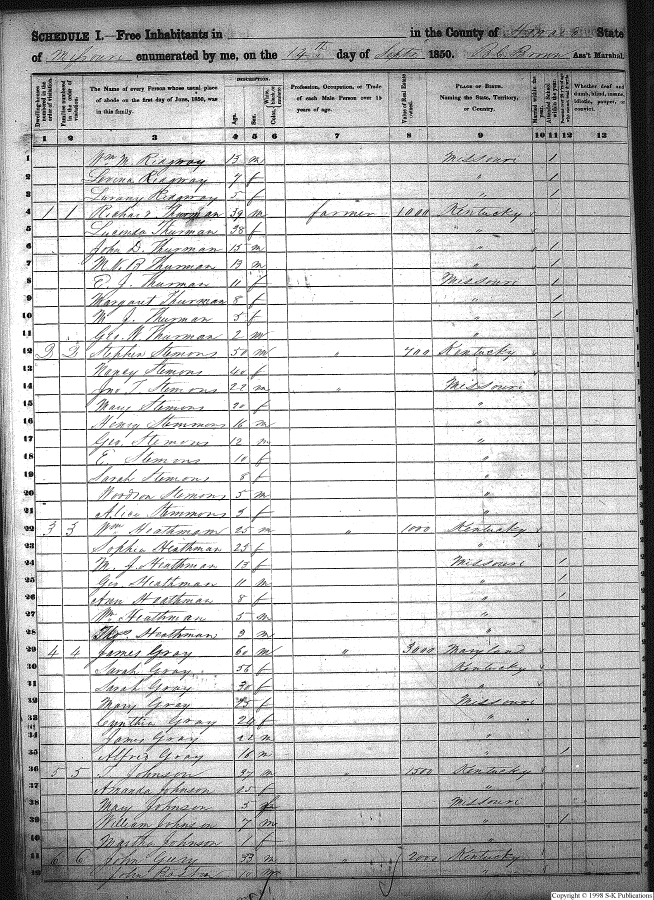 SCHEDULE I.—Free Inhabitants in in the County of State
of Missouri enumerated by me, on the 14th day of Septr 1850. Brown Ass't Marshal.
Dwelling-houses numbered in the order of visitation.
Families numbered in the order of visitation.
The Name of every Person whose usual place of abode on the first day of June, 1850, was in this family.
DESCRIPTION.
Age.
Sex.
Color, White, black, or mulatto.
Profession, Occupation, or Trade of each Male Person over 15 years of age.
Value of Real Estate owned.
PLACE OF BIRTH. Naming the State, Territory, or Country.
Married within the year.
Attended School within the year.
Whether deaf and dumb, blind, insane, idiotic, pauper, or convict.
1 2 3 4 5 6 7 8 9 10 11 12 13
1 Wm M Ridgway 13 m Missouri 1
2 Ridgway 7 f " 1
3 Ridgway 5 f " 1
4 1 1 Richard Thurman 39 m farmer 1000 Kentucky
5 Lucinda Thurman 38 f " "
6 John D. Thurman 15 m " 1
7 M. V. B Thurman 13 m " 1
8 E. J. Thurman 11 f Missouri 1
9 Margaret Thurman 8 f " 1
10 M. J. Thurman 5 f " 1
11 Geo. W. Thurman 2 m "
12 2 2 Stephen Stemons 50 m " 700 Kentucky
13 Nancy Stemons 40 f "
14 Jno T Stemons 22 m " Missouri
15 Mary Stemons 20 f "
16 Henry Stemmons 16 m "
17 Geo. Stemons 12 m "
18 E. Stemons 10 f "
19 Sarah Stemons 8 f "
20 Woodson Stemons 5 m "
21 Alice Stemmons 3 f "
22 3 3 Wm Heathman 25 m " 1000 Kentucky
23 Sophia Heathman 25 f "
24 M. J. Heathman 13 f Missouri 1
25 Geo Heathman 11 m " 1
26 Ann Heathman 8 f " 1
27 Wm Heathman 5 m "
28 Heathman 3 m "
29 4 4 James Gray 60 m " 3000 Maryland
30 Sarah Gray 56 f Kentucky
31 Sarah Gray 30 f "
32 Mary Gray f Missouri
33 Cynthia Gray 24 f "
34 James Gray 22 m "
35 Alfred Gray 16 m " 1
36 5 5 Johnson 27 m " 1500 Kentucky
37 Amanda Johnson 25 f "
38 Mary Johnson 5 f Missouri
39 William Johnson 7 m " 1
40 Martha Johnson 1 f "
41 6 6 John 33 m " 2000 Kentucky
42 John m "
Copyright © 1998 S-K Publications